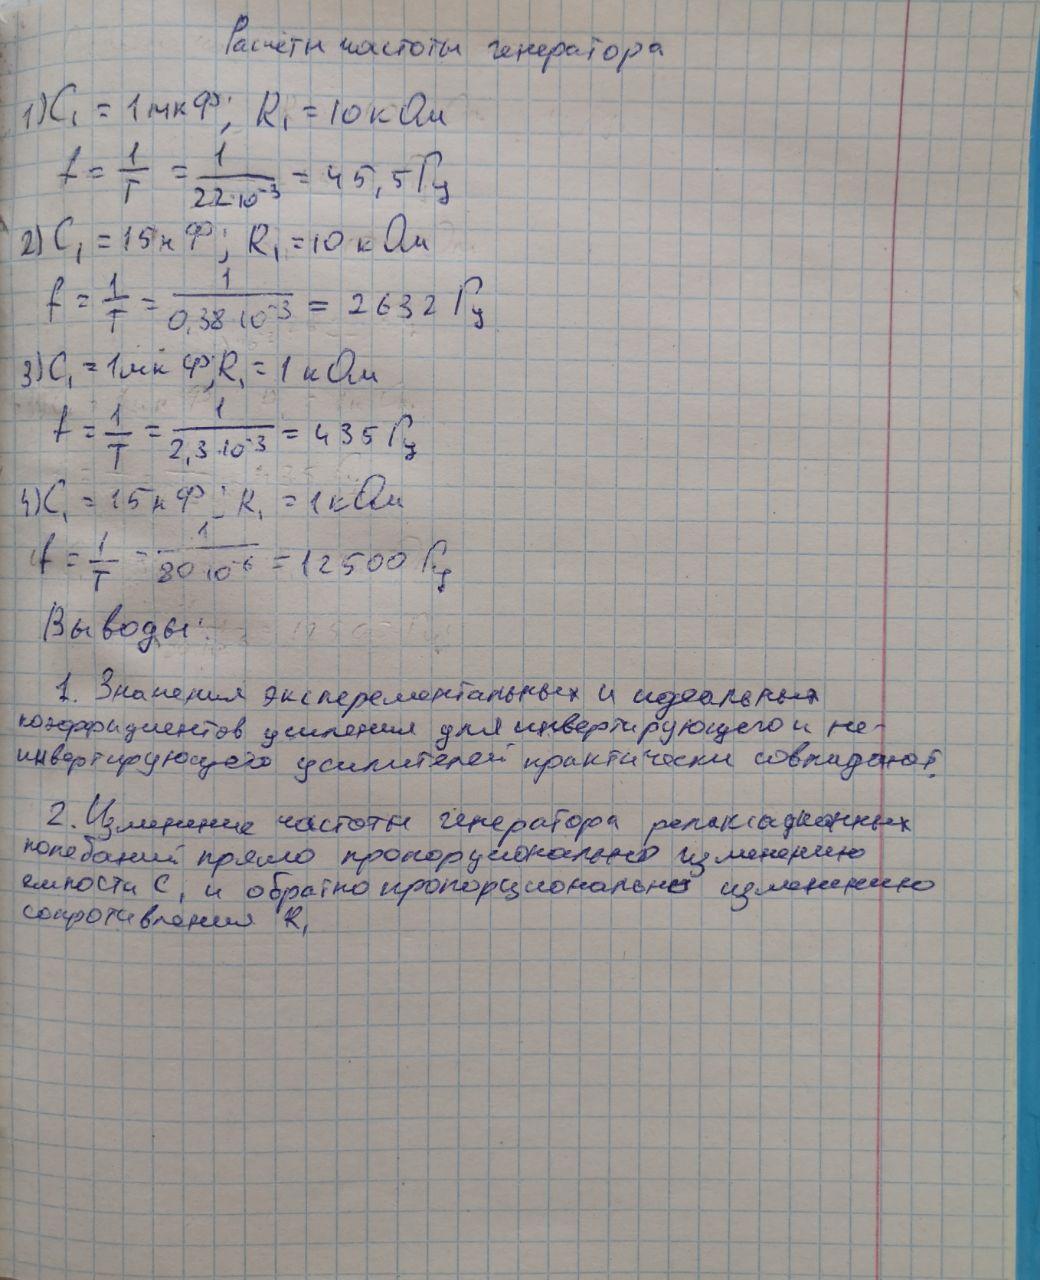 Расчёты частоты генератора
1) C₁ = 1 мкФ; R₁ = 10 кОм
f = 1/T = 1/(22·10⁻³) = 45,5 Гц
2) C₁ = 15 нФ; R₁ = 10 кОм
f = 1/T = 1/(0,38·10⁻³) = 2632 Гц
3) C₁ = 1 мкФ; R₁ = 1 кОм
f = 1/T = 1/(2,3·10⁻³) = 435 Гц
4) C₁ = 15 нФ; R₁ = 1 кОм
f = 1/T = 1/(80·10⁻⁶) = 12500 Гц
Выводы:
1. Значения эксперементальных и идеальных
коэффициентов усиления для инвертирующего и не-
инвертирующего усилителей практически совпадают.
2. Изменение частоты генератора релаксационных
колебаний прямо пропорционально изменению
емкости C₁ и обратно пропорционально изменению
сопротивления R₁